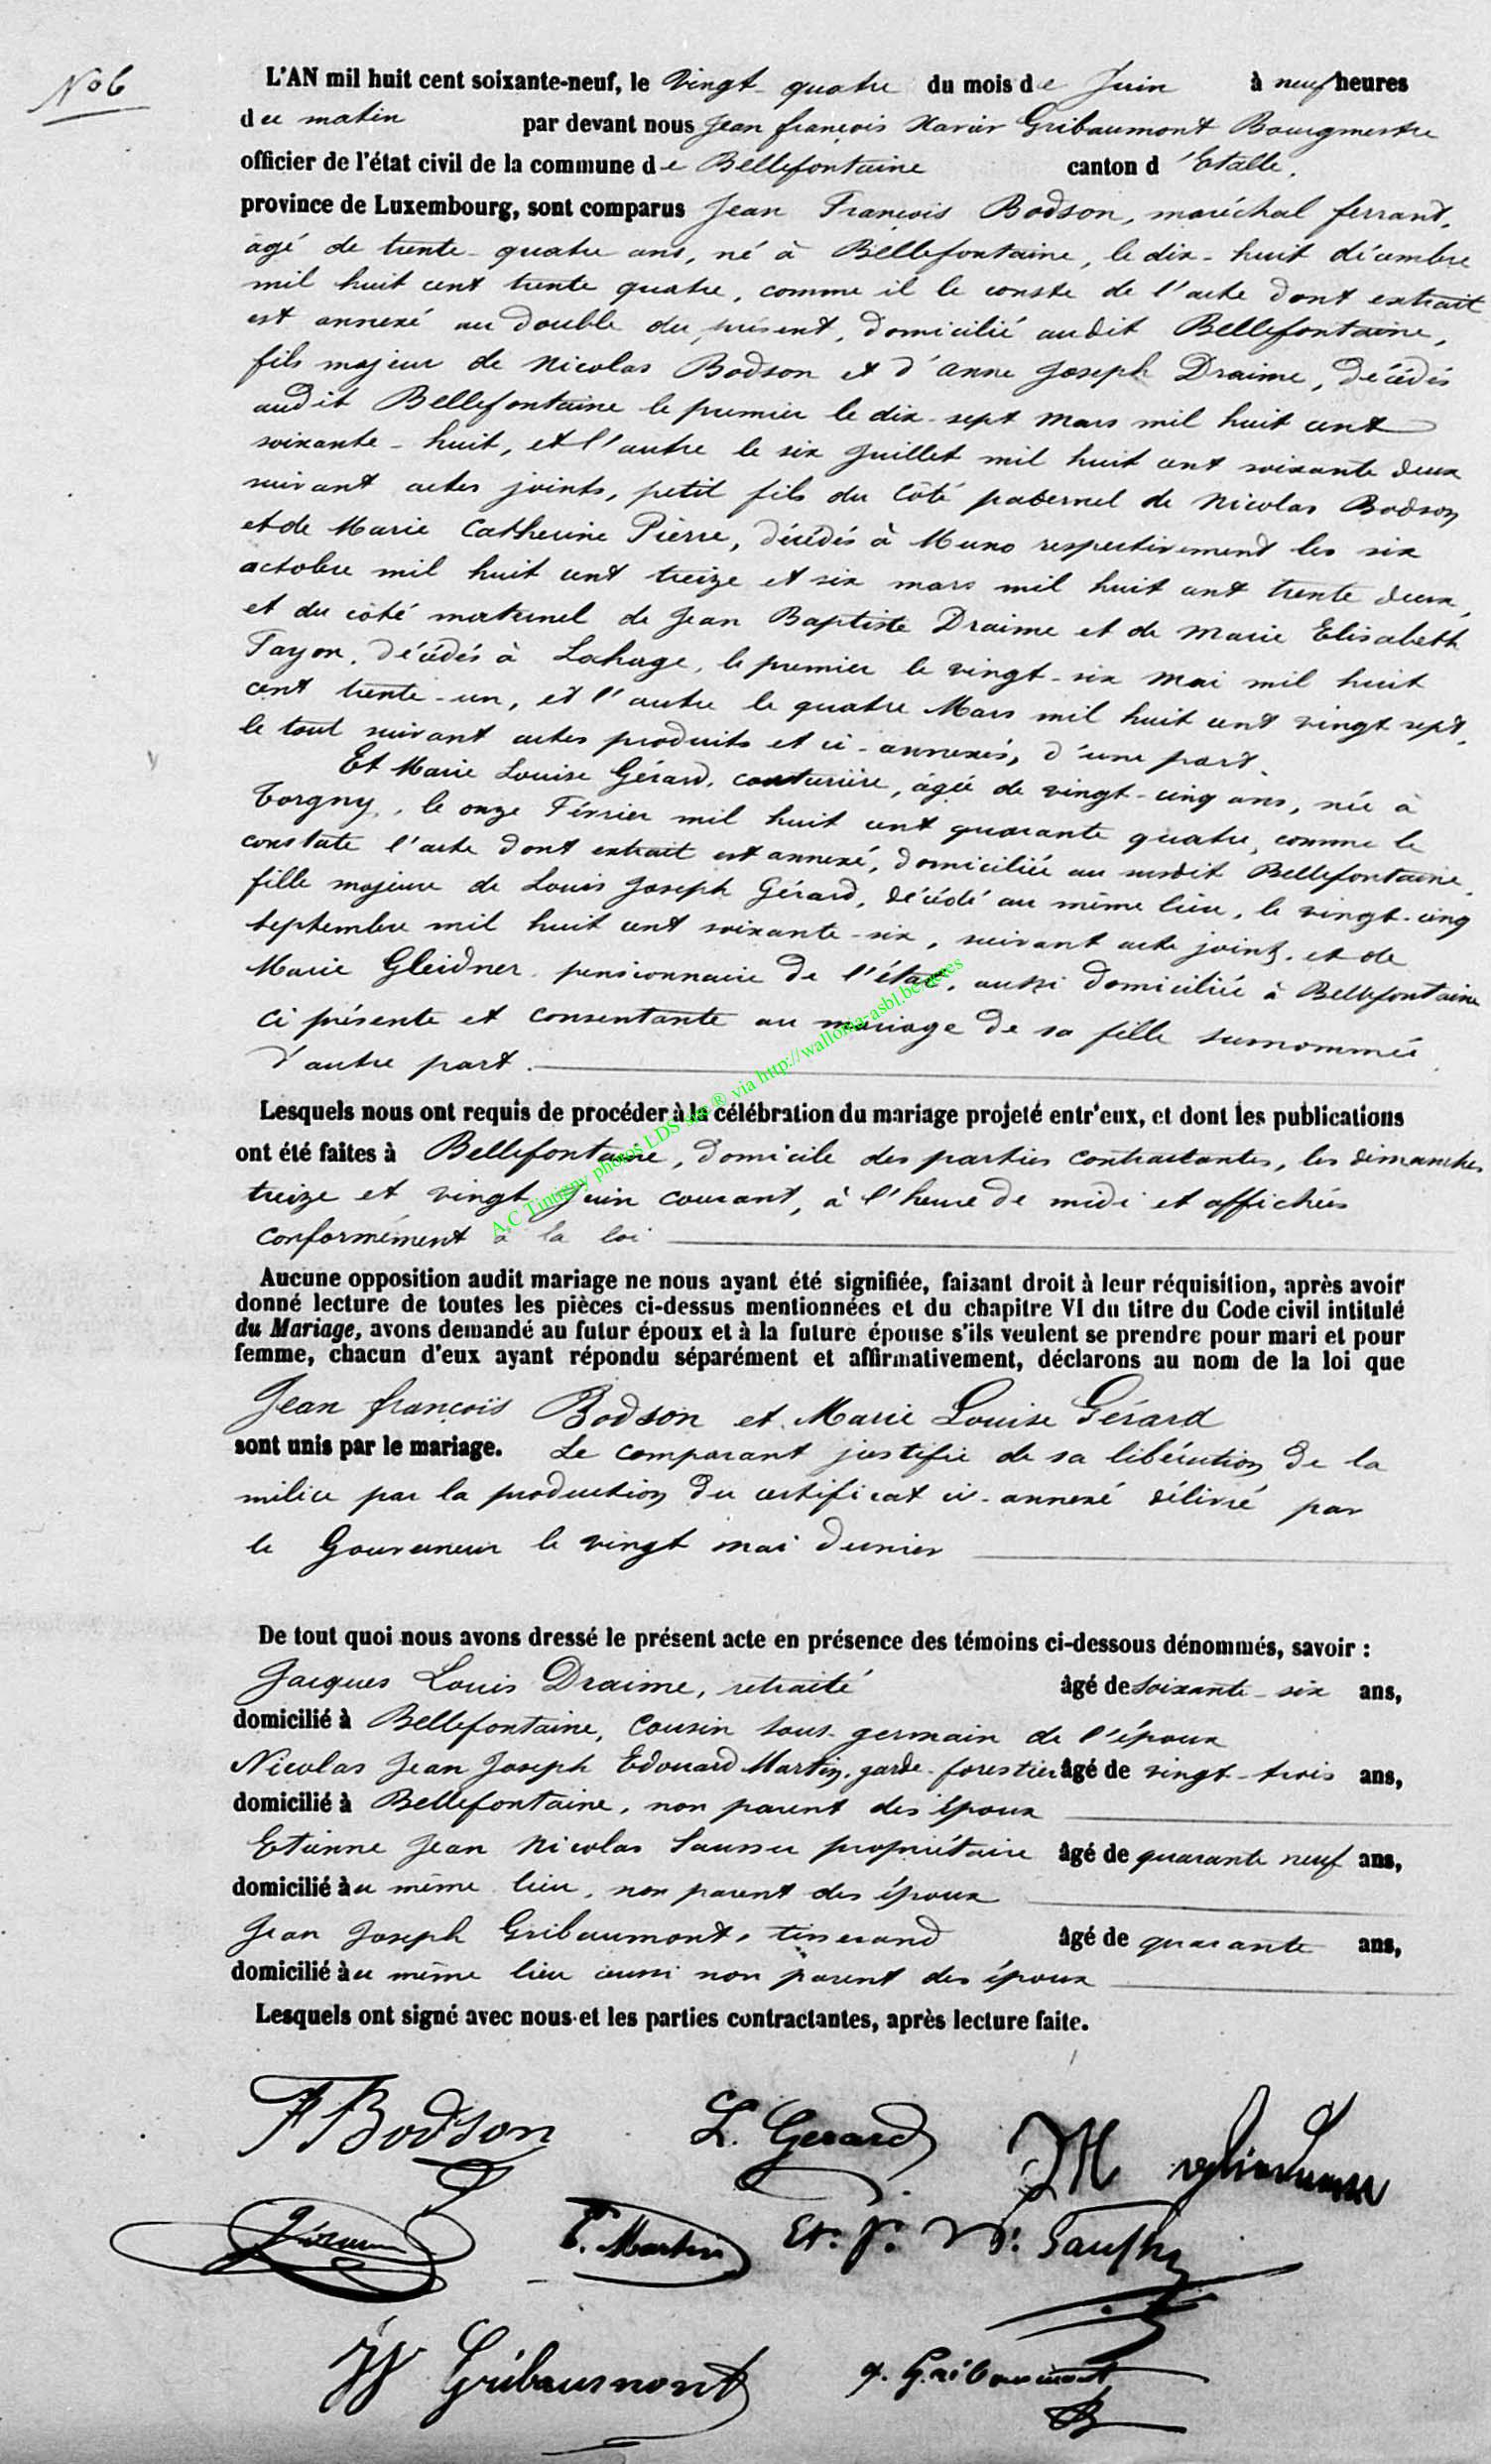 N° 6
L'AN mil huit cent soixante-neuf, le vingt-quatre du mois de Juin à neuf heures
du matin par devant nous Jean françois Xavier Gribaumont Bourgmestre
officier de l'état civil de la commune de Bellefontaine canton d'Etalle,
province de Luxembourg, sont comparus Jean François Bodson, maréchal ferrant,
âgé de trente-quatre ans, né à Bellefontaine, le dix-huit décembre
mil huit cent trente quatre, comme il le conste de l'acte dont extrait
est annexé au double du présent, domicilié audit Bellefontaine,
fils majeur de Nicolas Bodson et d'Anne Joseph Draime, décédés
audit Bellefontaine le premier le dix-sept Mars mil huit cent
soixante-huit, et l'autre le six Juillet mil huit cent soixante deux
suivant actes joints, petit fils du côté paternel de Nicolas Bodson
et de Marie Catherine Pierre, décédés à Muno respectivement les six
octobre mil huit cent treize et six mars mil huit cent trente deux,
et du côté maternel de Jean Baptiste Draime et de Marie Elisabeth
Tayon, décédés à Lahage, le premier le vingt-six Mai mil huit
cent trente-un, et l'autre le quatre Mars mil huit cent vingt sept,
le tout suivant actes produits et ci-annexés, d'une part.
Et Marie Louise Gérard, couturière, âgée de vingt-cinq ans, née à
Torgny, le onze Février mil huit cent quarante quatre, comme le
constate l'acte dont extrait est annexé, domiciliée au susdit Bellefontaine,
fille majeure de Louis Joseph Gérard, décédé au même lieu, le vingt-cinq
septembre mil huit cent soixante-six, suivant acte joint, et de
Marie Gleidner pensionnaire de l'état, aussi domiciliée à Bellefontaine
ci présente et consentante au mariage de sa fille surnommée
d'autre part.
Lesquels nous ont requis de procéder à la célébration du mariage projeté entr'eux, et dont les publications
ont été faites à Bellefontaine, domicile des parties contractantes, les dimanches
treize et vingt Juin courant, à l'heure de midi et affichées
conformément à la loi
Aucune opposition audit mariage ne nous ayant été signifiée, faisant droit à leur réquisition, après avoir
donné lecture de toutes les pièces ci-dessus mentionnées et du chapitre VI du titre du Code civil intitulé
du Mariage, avons demandé au futur époux et à la future épouse s'ils veulent se prendre pour mari et pour
femme, chacun d'eux ayant répondu séparément et affirmativement, déclarons au nom de la loi que
Jean françois Bodson et Marie Louise Gérard
sont unis par le mariage. Le comparant justifie de sa libération de la
milice par la production du certificat ci-annexé délivré par
le Gouverneur le vingt mai dernier
De tout quoi nous avons dressé le présent acte en présence des témoins ci-dessous dénommés, savoir :
Jacques Louis Draime, retraité âgé de soixante-six ans,
domicilié à Bellefontaine, cousin sous-germain de l'époux
Nicolas Jean Joseph Edouard Martin, garde-forestier âgé de vingt-trois ans,
domicilié à Bellefontaine, non parent des époux
Etienne Jean Nicolas propriétaire âgé de quarante neuf ans,
domicilié au même lieu, non parent des époux
Jean Joseph Gribaumont, tisserand âgé de quarante ans,
domicilié au même lieu aussi non parent des époux
Lesquels ont signé avec nous et les parties contractantes, après lecture faite.
F Bodson L. Gerard M
E. Martin Et. J. N.
Gribaumont J. Gribaumont
A.C Tintigny photos LDS via http://wallonia-asbl.be